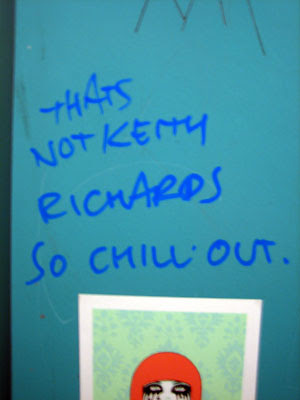 THATS
NOT KEITH
RICHARDS
SO CHILL·OUT.